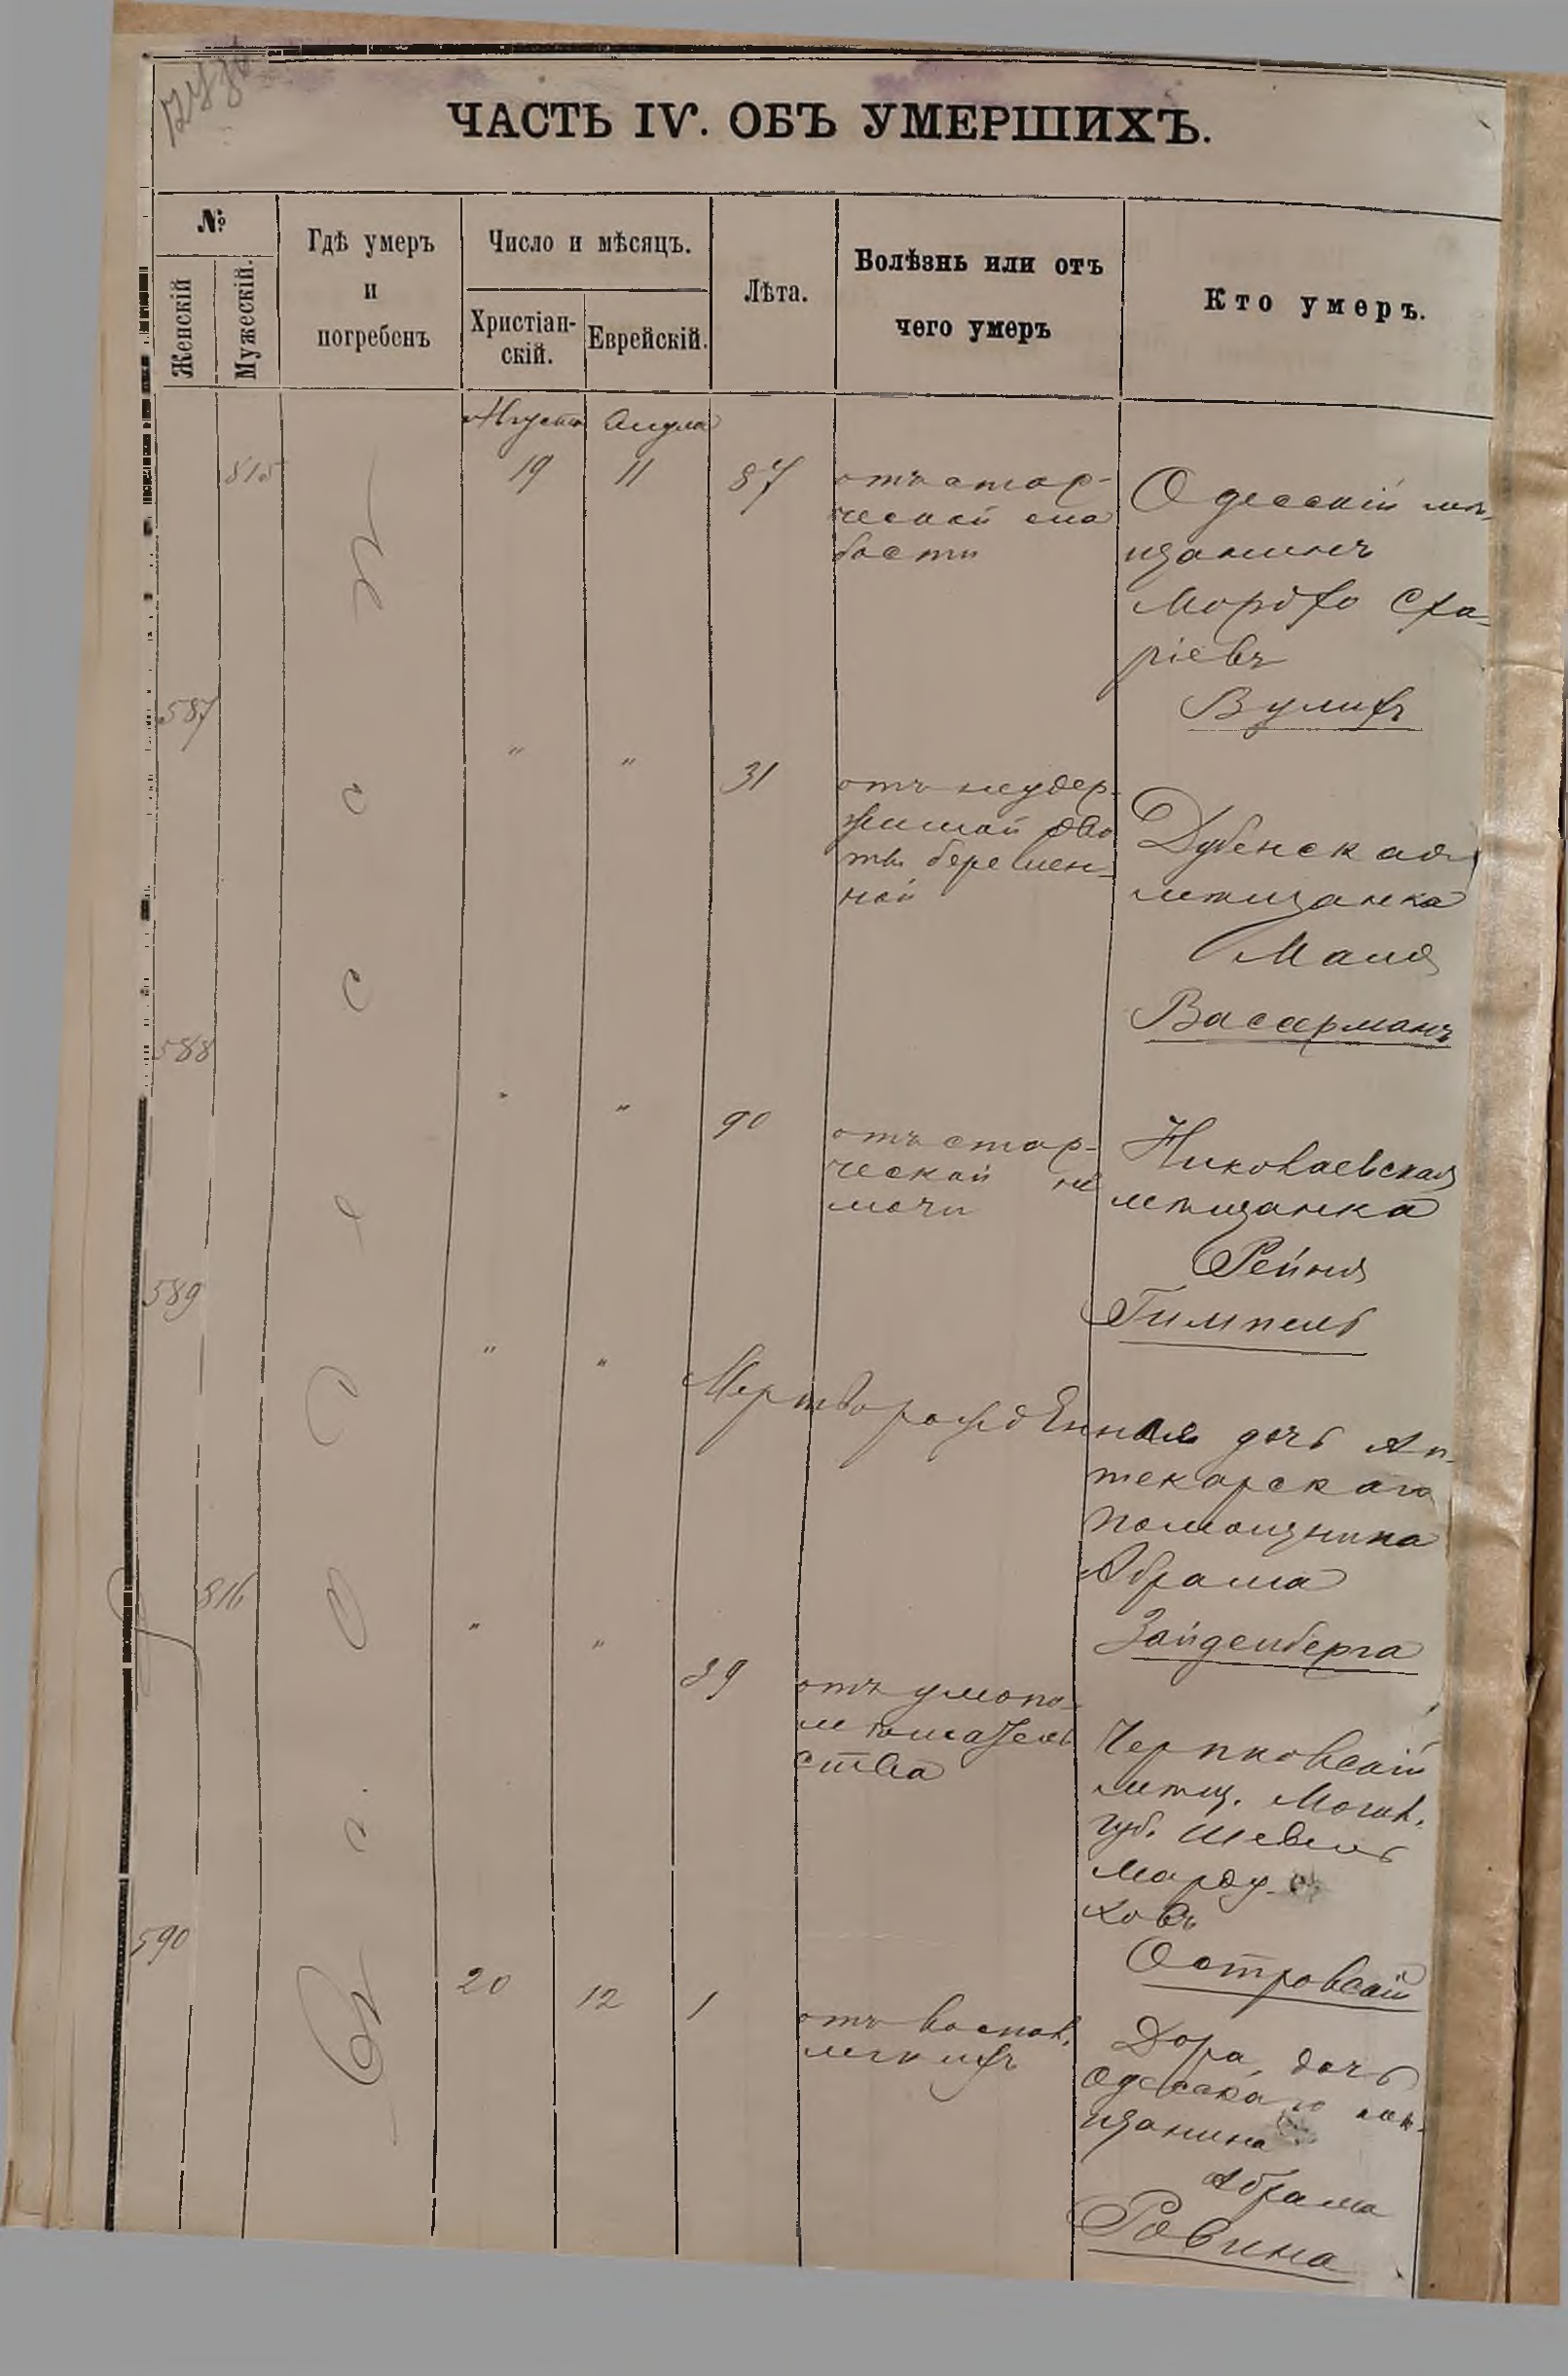 ЧАСТЬ IV. ОБЪ УМЕРШИХЪ.
№
Женскій
Мужескій.
Гдѣ умеръ
и
погребенъ
Число и мѣсяцъ.
Христіан-
скій.
Еврейскій.
Лѣта.
Болѣзнь или отъ
чего умеръ
Кто умеръ.
Августа
19
87
отъ стар-
ческой сла
бости
815
11
Одесскій мѣ-
щанинъ
Мордхо Сха-
ріевъ
Вулихъ
587
" " 31
отъ неудер-
жимой рво
ты беремен-
ной
Дубенская
мѣщанка
Маля
Вассерманъ
588
" " 90
отъ стар-
ческой не
мочи
Николаевская
мѣщанка
Рейзя
Гимпель
589
" "
Мертворожденная дочь Ап-
текарскаго
помощника
Абрама
Зайденберга
816
" " 39
отъ умопо-
мѣшатель
ства
мѣщ. Могил.
губ. Шевель
Марду-
ховъ
Островскій
590
20 12 1
отъ воспал.
легкихъ
Дора, дочь
Одесскаго мѣ-
щанина
Абрама
Ровина
Одесса